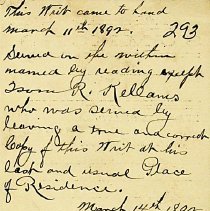 This Writ came to hand
march 11th 1892. 293
Served on the within
named by reading except
Isom R. Kellams
who was served by
leaving a true and correct
Copy of this Writ at his
last and usual Place
of Residence.
March 14th 1892